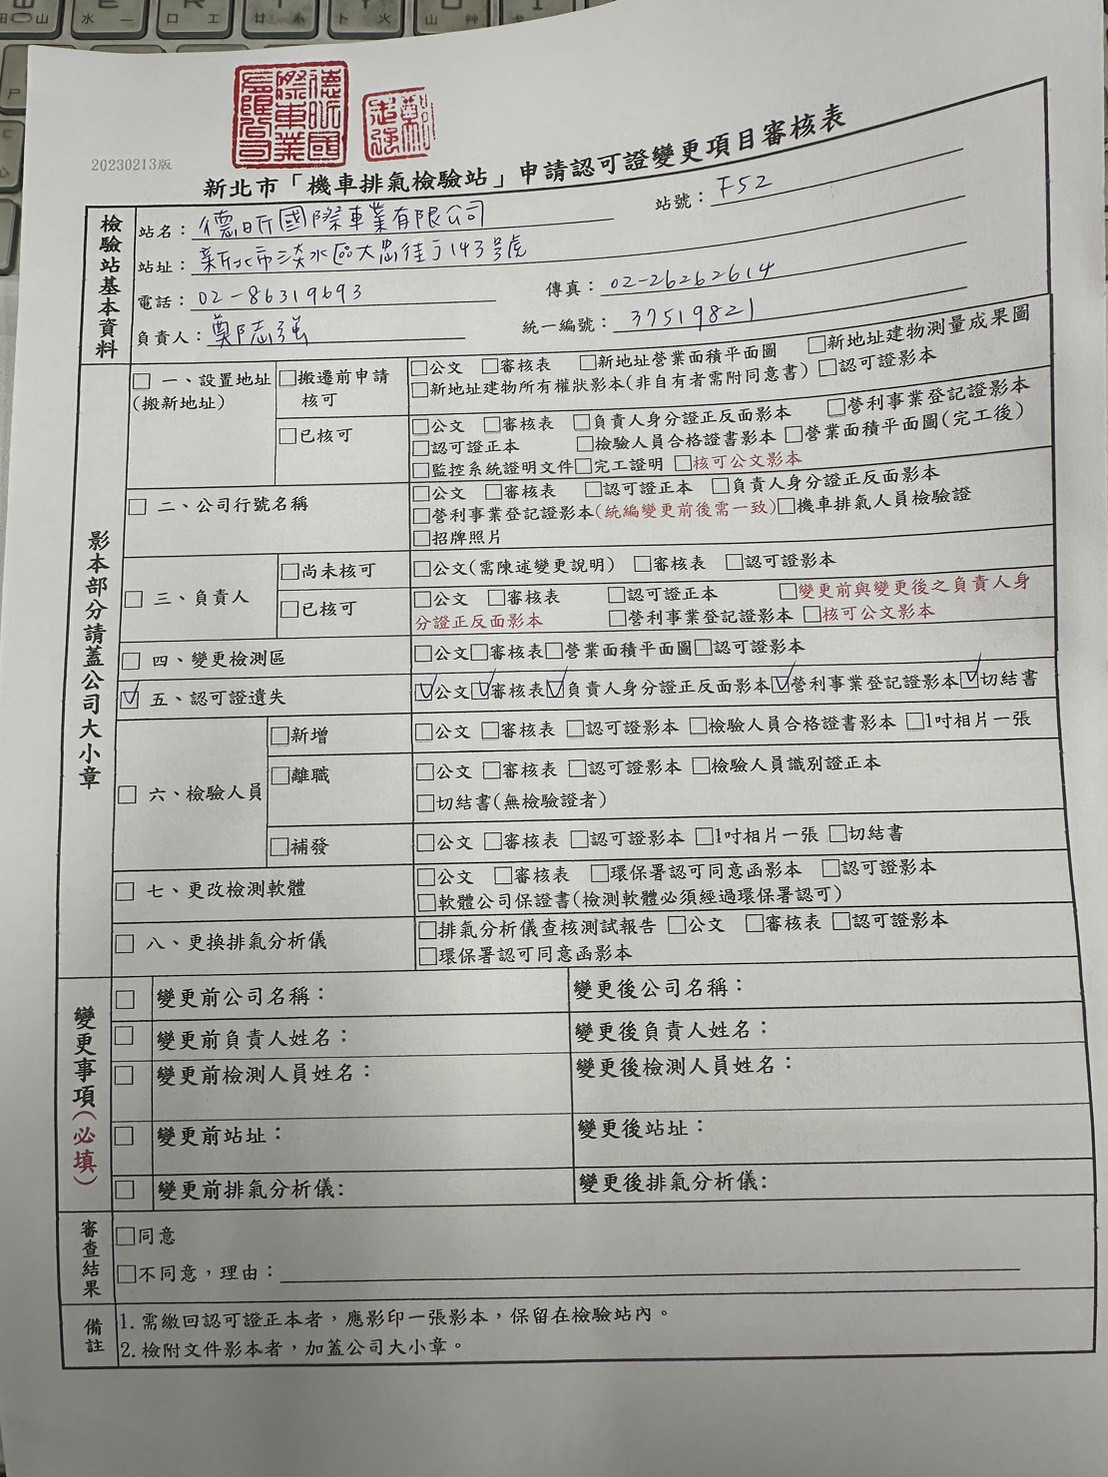 德昕國際車業有限公司
20230213版
新北市「機車排氣檢驗站」申請認可證變更項目審核表
檢驗站基本資料
站名：德昕國際車業有限公司 站號：F52
站址：新北市淡水區大忠街143號
電話：02-86319693 傳真：02-26262614
負責人：鄭志強 統一編號：37519821
影本部分請蓋公司大小章
□ 一、設置地址(搬新地址)
□搬遷前申請核可
□公文 □審核表 □新地址營業面積平面圖 □新地址建物測量成果圖
□新地址建物所有權狀影本(非自有者需附同意書) □認可證影本
□已核可
□公文 □審核表 □負責人身分證正反面影本 □營利事業登記證影本
□認可證正本 □檢驗人員合格證書影本 □營業面積平面圖(完工後)
□監控系統證明文件□完工證明 □核可公文影本
□ 二、公司行號名稱
□公文 □審核表 □認可證正本 □負責人身分證正反面影本
□營利事業登記證影本(統編變更前後需一致)□機車排氣人員檢驗證
□招牌照片
□ 三、負責人
□尚未核可
□公文(需陳述變更說明) □審核表 □認可證影本
□已核可
□公文 □審核表 □認可證正本 □變更前與變更後之負責人身
分證正反面影本 □營利事業登記證影本 □核可公文影本
□ 四、變更檢測區
□公文□審核表□營業面積平面圖□認可證影本
☑ 五、認可證遺失
☑公文☑審核表☑負責人身分證正反面影本☑營利事業登記證影本☑切結書
□ 六、檢驗人員
□新增
□公文 □審核表 □認可證影本 □檢驗人員合格證書影本 □1吋相片一張
□離職
□公文 □審核表 □認可證影本 □檢驗人員識別證正本
□切結書(無檢驗證者)
□補發
□公文 □審核表 □認可證影本 □1吋相片一張 □切結書
□ 七、更改檢測軟體
□公文 □審核表 □環保署認可同意函影本 □認可證影本
□軟體公司保證書(檢測軟體必須經過環保署認可)
□ 八、更換排氣分析儀
□排氣分析儀查核測試報告 □公文 □審核表 □認可證影本
□環保署認可同意函影本
變更事項(必填)
□ 變更前公司名稱： 變更後公司名稱：
□ 變更前負責人姓名： 變更後負責人姓名：
□ 變更前檢測人員姓名： 變更後檢測人員姓名：
□ 變更前站址： 變更後站址：
□ 變更前排氣分析儀: 變更後排氣分析儀:
審查結果
□同意
□不同意，理由：
備註
1. 需繳回認可證正本者，應影印一張影本，保留在檢驗站內。
2. 檢附文件影本者，加蓋公司大小章。